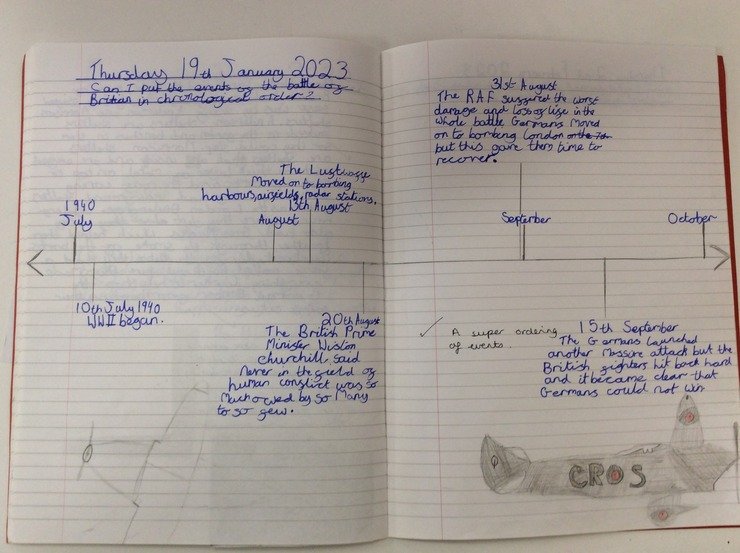 Thursday 19th January 2023
Can I put the events of the battle of
Britian in chronological order?
The Lustwaff
Moved on to bombing
harbours, airfields, radar stations.
13th August
1940
July
August
10th July 1940
WWII began.
20th August
The British Prime
Minister Wiston
Churchill said
Never in the field of
human conflict was so
Much owed by so Many
to so few.
31st August
The RAF suffered the worst
damage and loss of life in the
whole battle Germans Moved
on to bombing London on the 7th
but this gave them time to
recover.
September
October
✓ A super ordering
of events.
15th September
The Germans launched
another Massive attack but the
British fighters hit back hard
and it became clear that
Germans could not win.
CROS